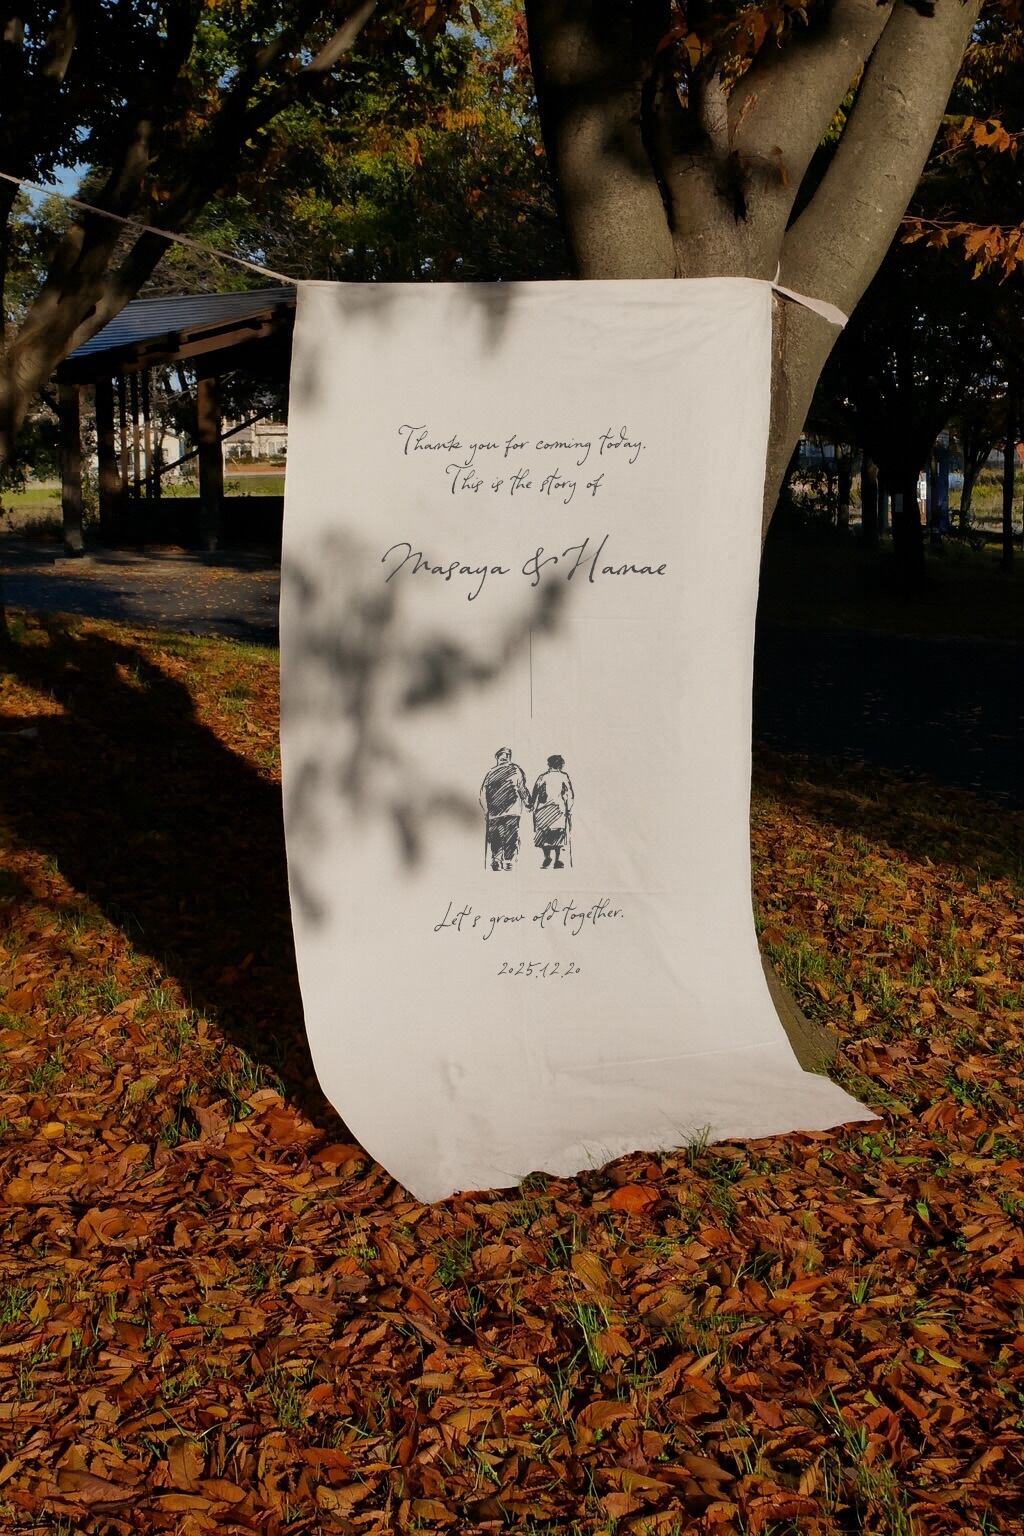 Thank you for coming today.
This is the story of
Masaya & Hanae
Let's grow old together.
2025.12.20